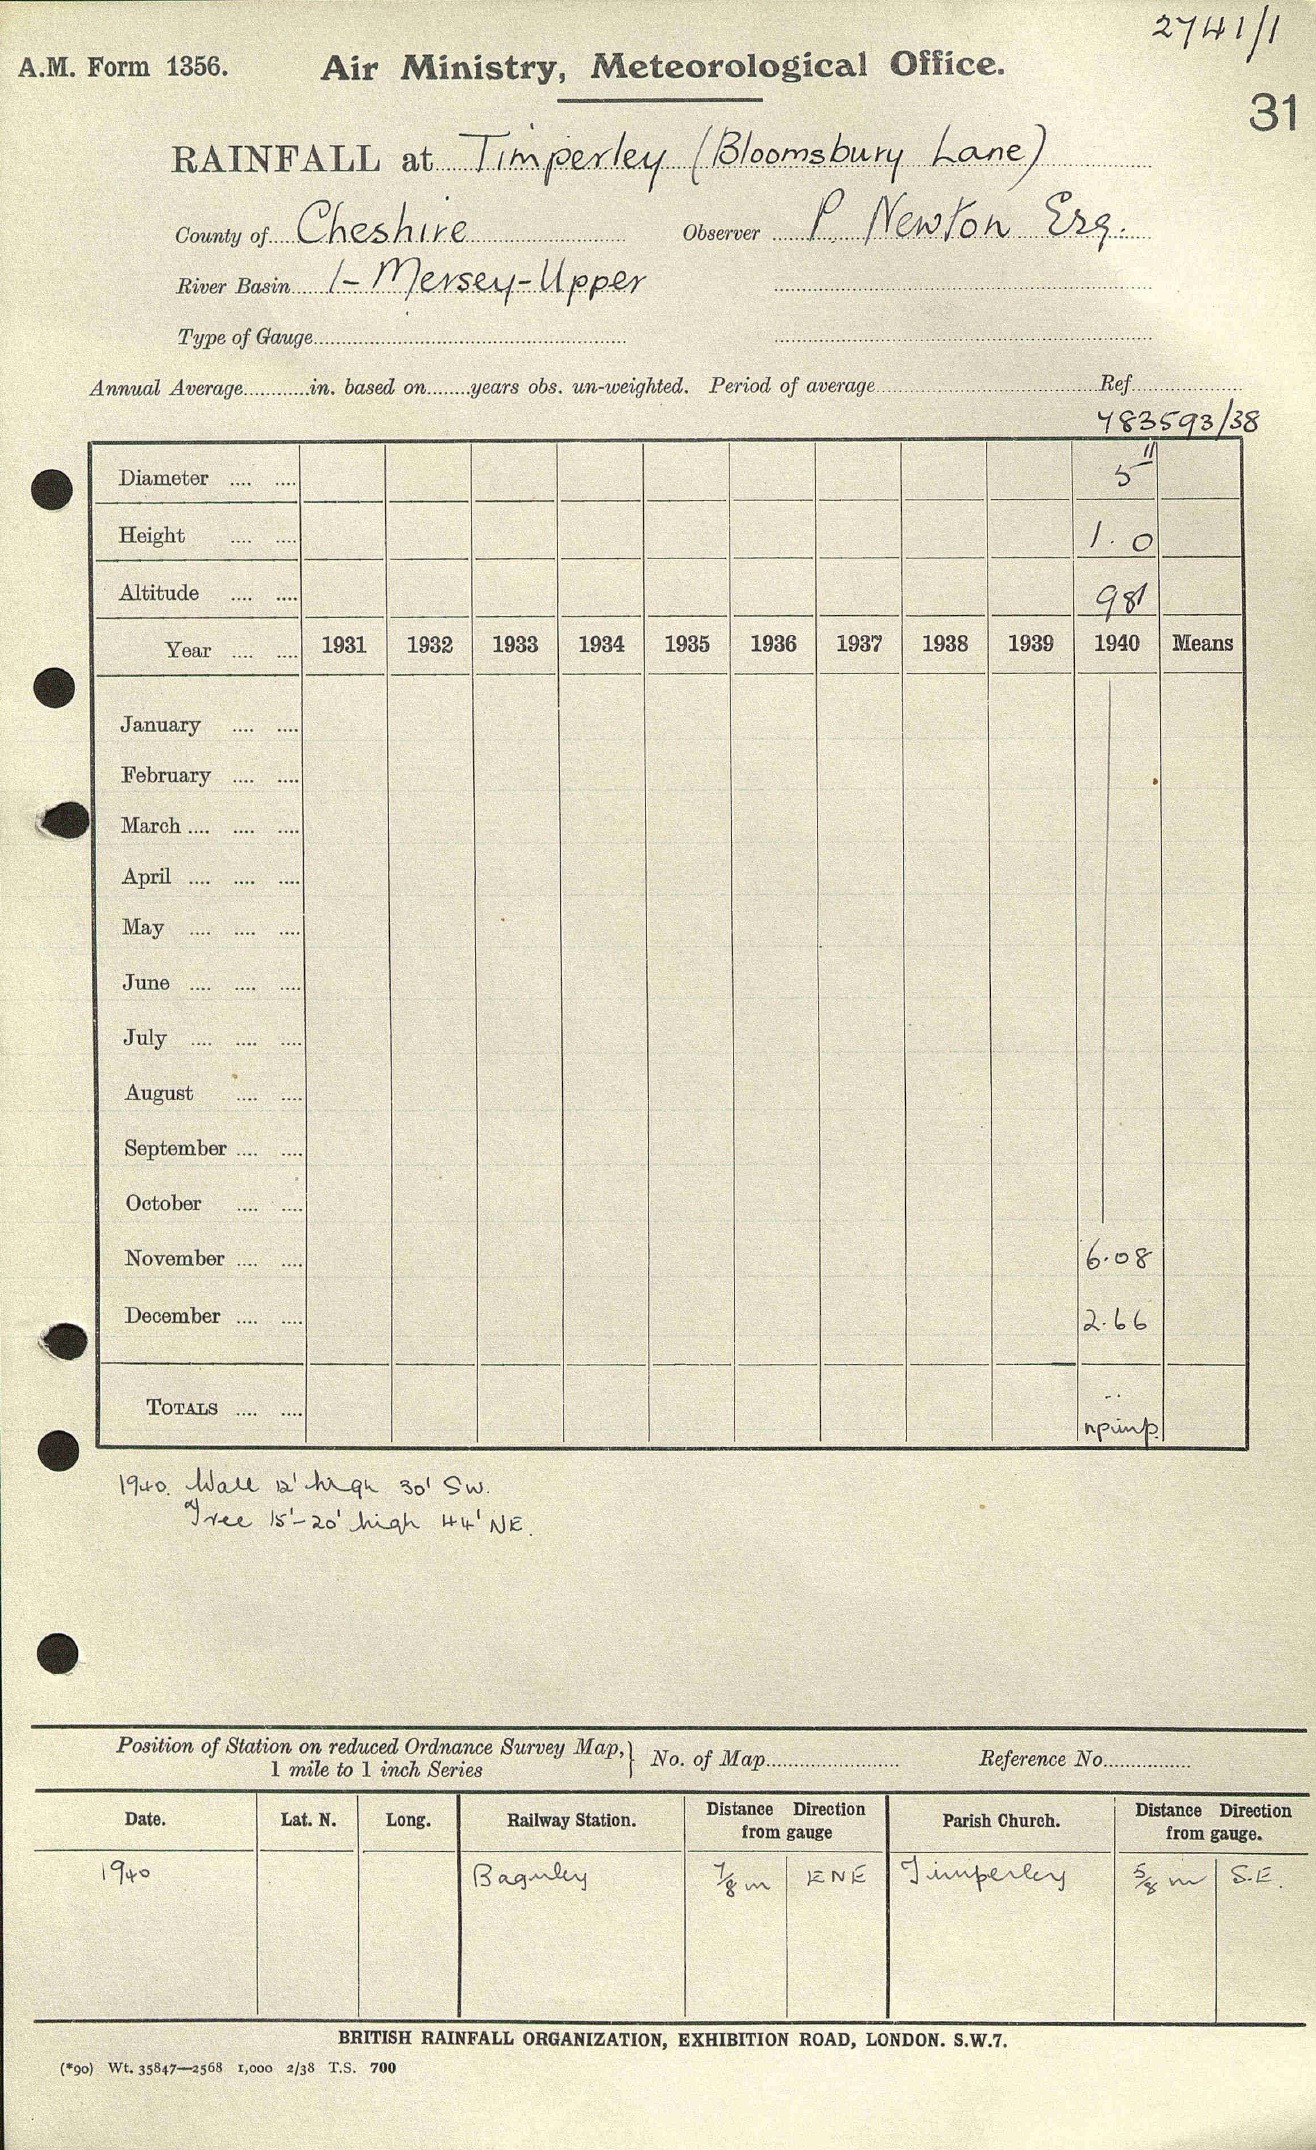 2741/1
A.M. Form 1356. Air Ministry, Meteorological Office.
31
RAINFALL at Timperley (Bloomsbury Lane)
County of Cheshire Observer P. Newton Esq.
River Basin 1-Mersey-Upper
Type of Gauge
Annual Average in. based on years obs. un-weighted. Period of average Ref
483593/38
Diameter 5"
Height 1.0
Altitude 98'
Year 1931 1932 1933 1934 1935 1936 1937 1938 1939 1940 Means
January
February
March
April
May
June
July
August
September
October
November 6.08
December 2.66
TOTALS ..
npimp.
1940. Wall 12' high 30' SW.
Tree 15'-20' high 44' NE.
Position of Station on reduced Ordnance Survey Map,} No. of Map Reference No.
1 mile to 1 inch Series
Date. Lat. N. Long. Railway Station. Distance Direction from gauge Parish Church. Distance Direction from gauge.
1940 Baguley 7/8 m ENE Timperley 5/8 m S.E.
BRITISH RAINFALL ORGANIZATION, EXHIBITION ROAD, LONDON. S.W.7.
(*90) Wt. 35847—2568 1,000 2/38 T.S. 700